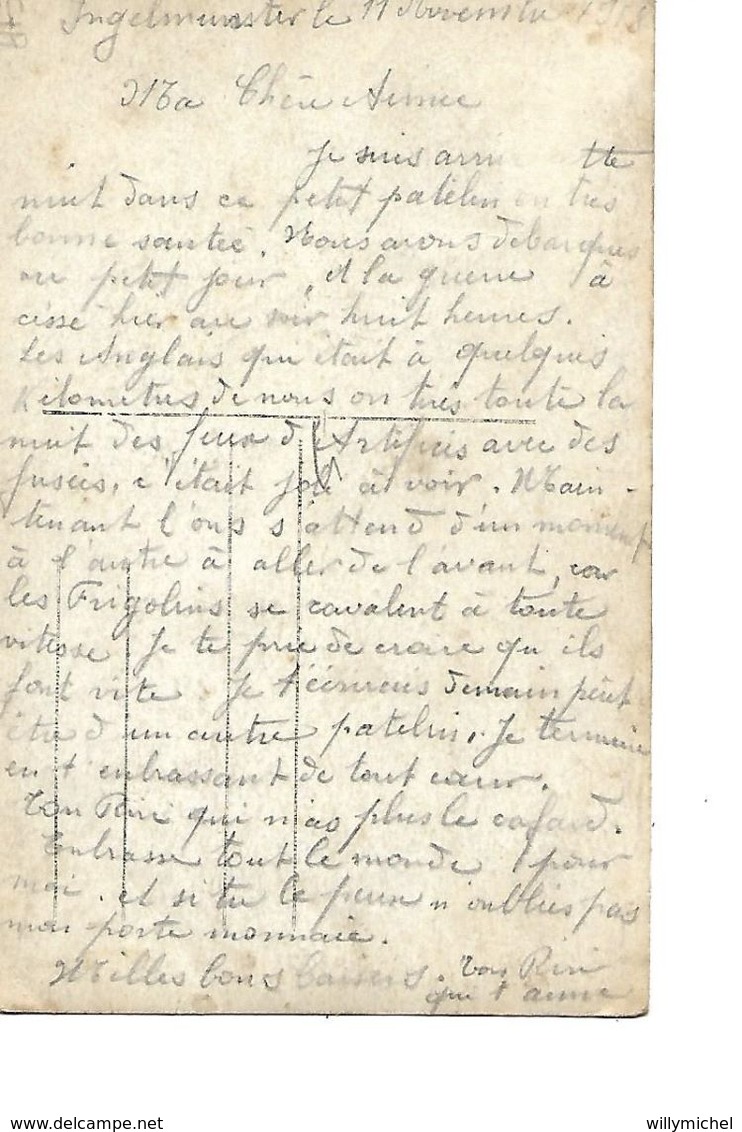 Ingelmunster le 11 Novembre 1918
Ma Chère Aimée
Je suis arri tte
nuit dans ce petit patelin en très
bonne santée. Nous avons debarques
au petit jour, et la guerre à
céssé hier au soir huit heures.
Les Anglais qui était à quelques
Kilomètres de nous on tirés toute la
nuit des feux d'Artifices avec des
fusées, c'était joli à voir. Main-
tenant l'ons s'attend d'un moment
à l'autre à aller de l'avant, car
les Frigolins se cavalent à toute
vitesse. Je te prie de craire qu'ils
font vite. Je t'écrirais demain peut
être d'un autre patelin. Je termine
en t'enbrassant de tout cœur.
Ton Riri qui n'as plus le cafard.
Enbrasse tout le monde pour
moi. et si tu le peux n'oublies pas
mon porte monnaie.
Milles bons baisers. Ton Riri
qui t'aime
delcampe.net
willymichel